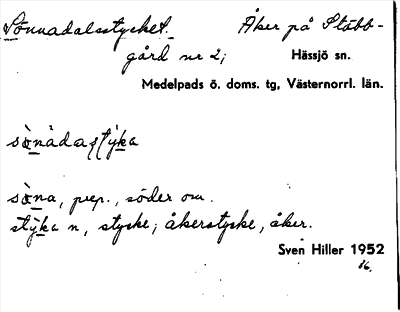 Sönnadalsstycket. Åker på Stöbb-
gård nr 2; Hässjö sn.
Medelpads ö. doms. tg, Västernorrl. län.
söna, prep., söder om.
stýka n, stycke; åkerstycke, åker.
Sven Hiller 1952
16.